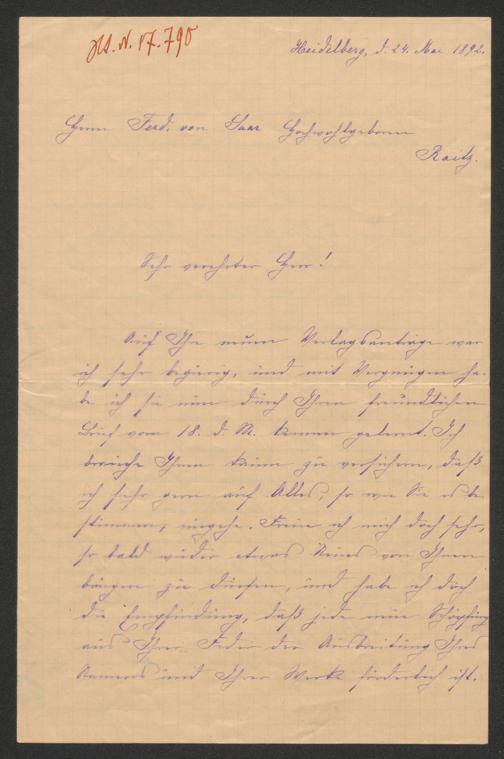 H.I.N. 17.790
Heidelberg, d. 24. Mai 1892.
Herrn Ferd. von Saar Hochwohlgeboren
Raitz.
Sehr verehrter Herr!
Auf Ihre neuen Verlagsanträge war
ich sehr begierig, und mit Vergnügen ha-
be ich sie nun durch Ihren freundlichen
Brief vom 18. d. M. kennen gelernt. Ich
brauche Ihnen kaum zu versichern, daß
ich sehr gern auf Alles, so wie Sie es be-
stimmen, eingehe. Freue ich mich doch sehr,
so bald wieder etwas Neues von Ihnen
bringen zu dürfen, und habe ich doch
die Empfindung, daß jede neue Schöpfung
aus Ihrer Feder der Ausbreitung Ihres
Namens und Ihrer Werke förderlich ist.